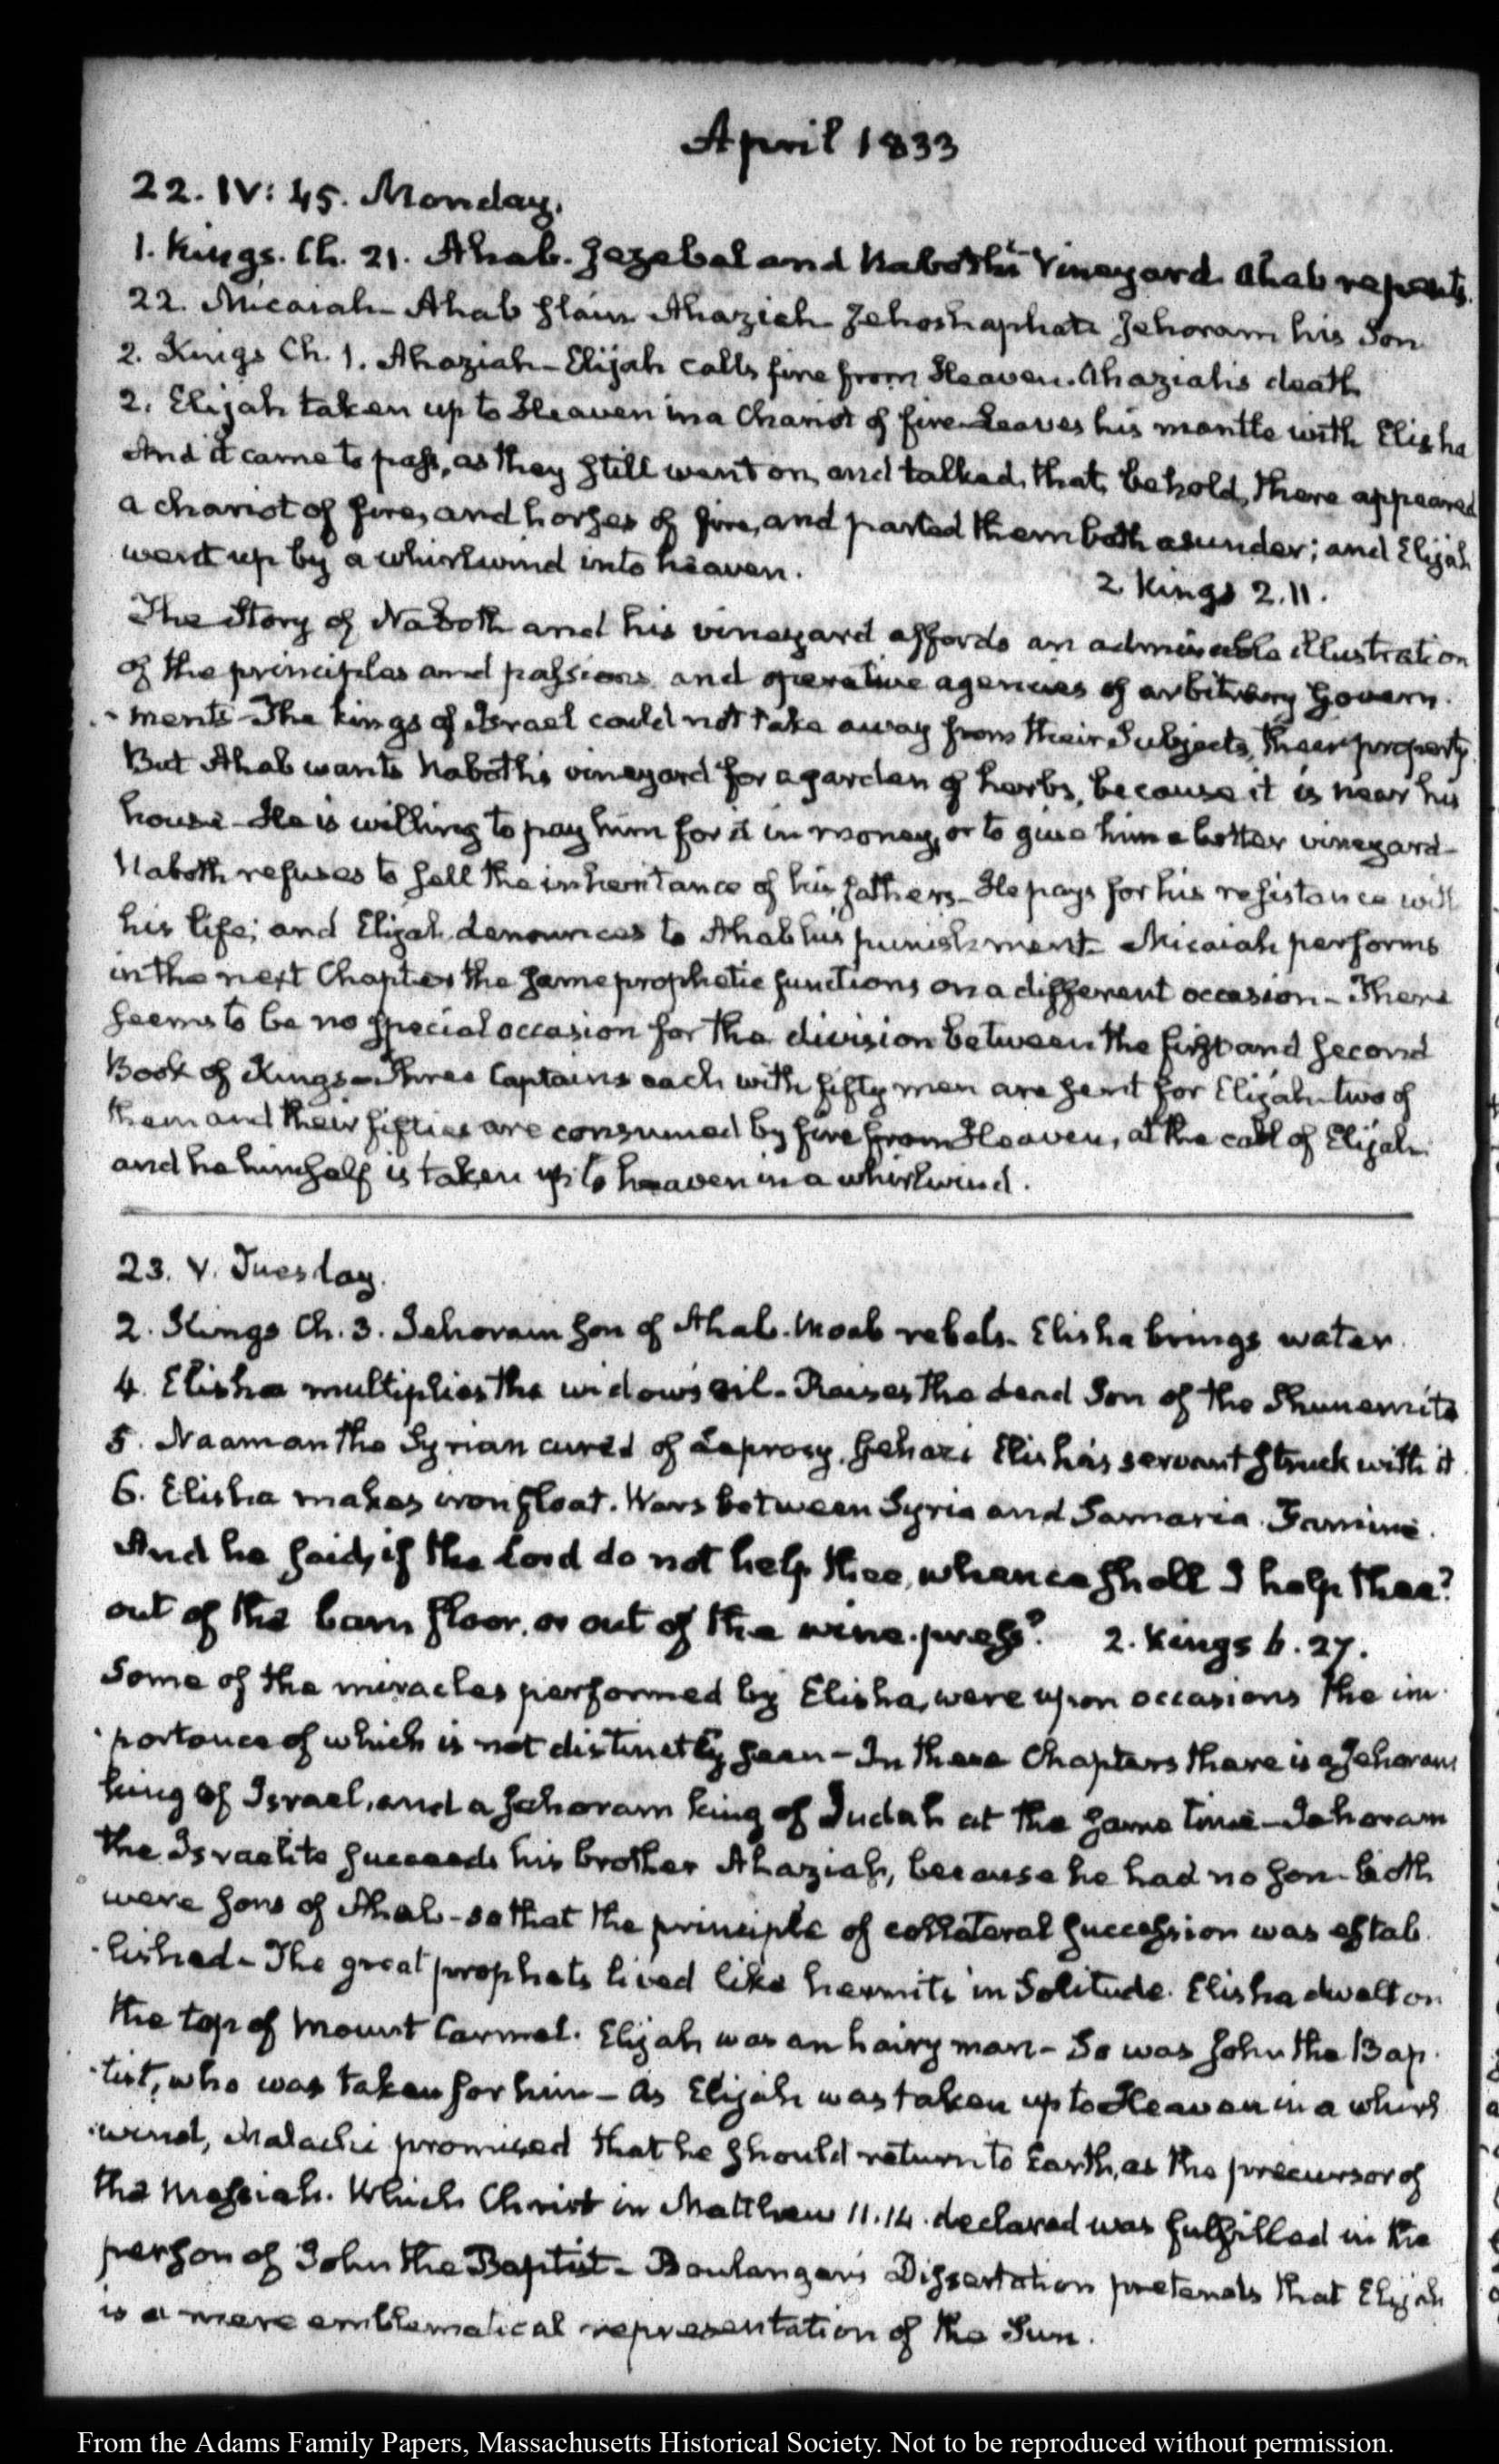 April 1833
22. IV: 45. Monday.
1. Kings. Ch. 21. Ahab. Jezebel and Naboth's Vineyard. Ahab repents.
22. Micaiah - Ahab slain Ahaziah Jehoshaphat Jehoram his Son
2. Kings Ch. 1. Ahaziah - Elijah calls fire from Heaven. Ahaziah's death
2. Elijah taken up to Heaven in a Chariot of fire - Leaves his mantle with Elisha
And it came to pass, as they still went on, and talked, that, behold, there appeared
a chariot of fire, and horses of fire, and parted them both asunder; and Elijah
went up by a whirlwind into heaven.
2 Kings 2.11.
The Story of Naboth and his vineyard affords an admirable illustration
of the principles and passions and operative agencies of arbitrary Govern-
-ments - The kings of Israel could not take away from their Subjects, their property.
But Ahab wants Naboth's vineyard for a garden of herbs, because it is near his
house - He is willing to pay him for it in money, or to give him a better vineyard -
Naboth refuses to sell the inheritance of his fathers - He pays for his resistance with
his life; and Elijah denounces to Ahab his punishment - Micaiah performs
in the next Chapter the same prophetic functions on a different occasion - There
seems to be no special occasion for the division between the first and second
Book of Kings - Three Captains each with fifty men are sent for Elijah - two of
them and their fifties are consumed by fire from Heaven, at the call of Elijah
and he himself is taken up to heaven in a whirlwind.
23. V. Tuesday.
2. Kings Ch. 3. Jehoram son of Ahab. Moab rebels - Elisha brings water
4. Elisha multiplies the widow's oil - Raises the dead Son of the Shunemite
5. Naaman the Syrian cured of Leprosy. Gehazi Elisha's servant struck with it
6. Elisha makes iron float. Wars between Syria and Samaria. Famine.
And he said, if the Lord do not help thee, whence shall I help thee?
out of the barn floor, or out of the wine-press? 2. Kings 6. 27.
Some of the miracles performed by Elisha, were upon occasions the im-
-portance of which is not distinctly seen - In these Chapters there is a Jehoram
king of Israel, and a Jehoram king of Judah at the same time - Jehoram
the Israelite succeeds his brother Ahaziah, because he had no son - both
were sons of Ahab - so that the principle of collateral succession was estab
-lished - The great prophets lived like hermits in Solitude. Elisha dwelt on
the top of Mount Carmel. Elijah was an hairy man - So was John the Bap-
-tist, who was taken for him - As Elijah was taken up to Heaven in a whirl
-wind, Malachi promised that he should return to Earth, as the precursor of
the Messiah. Which Christ in Matthew 11.14. declared was fulfilled in the
person of John the Baptist - Boulanger's Dissertation pretends that Elijah
is a mere emblematical representation of the Sun.
From the Adams Family Papers, Massachusetts Historical Society. Not to be reproduced without permission.